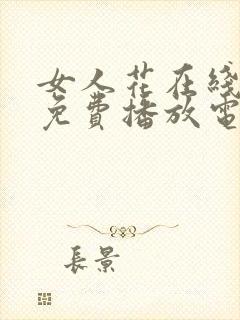 女人花在线
免费播放电
長景